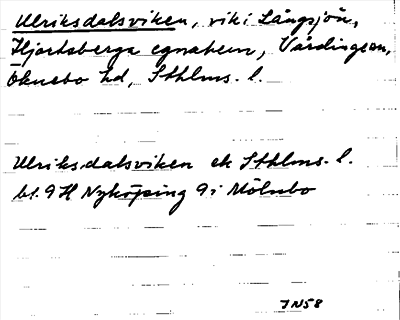 Ulriksdalsviken, vik i Långsjön,
Hjortsberga egnahem, Vårdinge sn,
Öknebo hd, Sthlms. l.
Ulriksdalsviken ek Sthlms. l.
bl. 9H Nyköping 9i Mölnbo
JN58